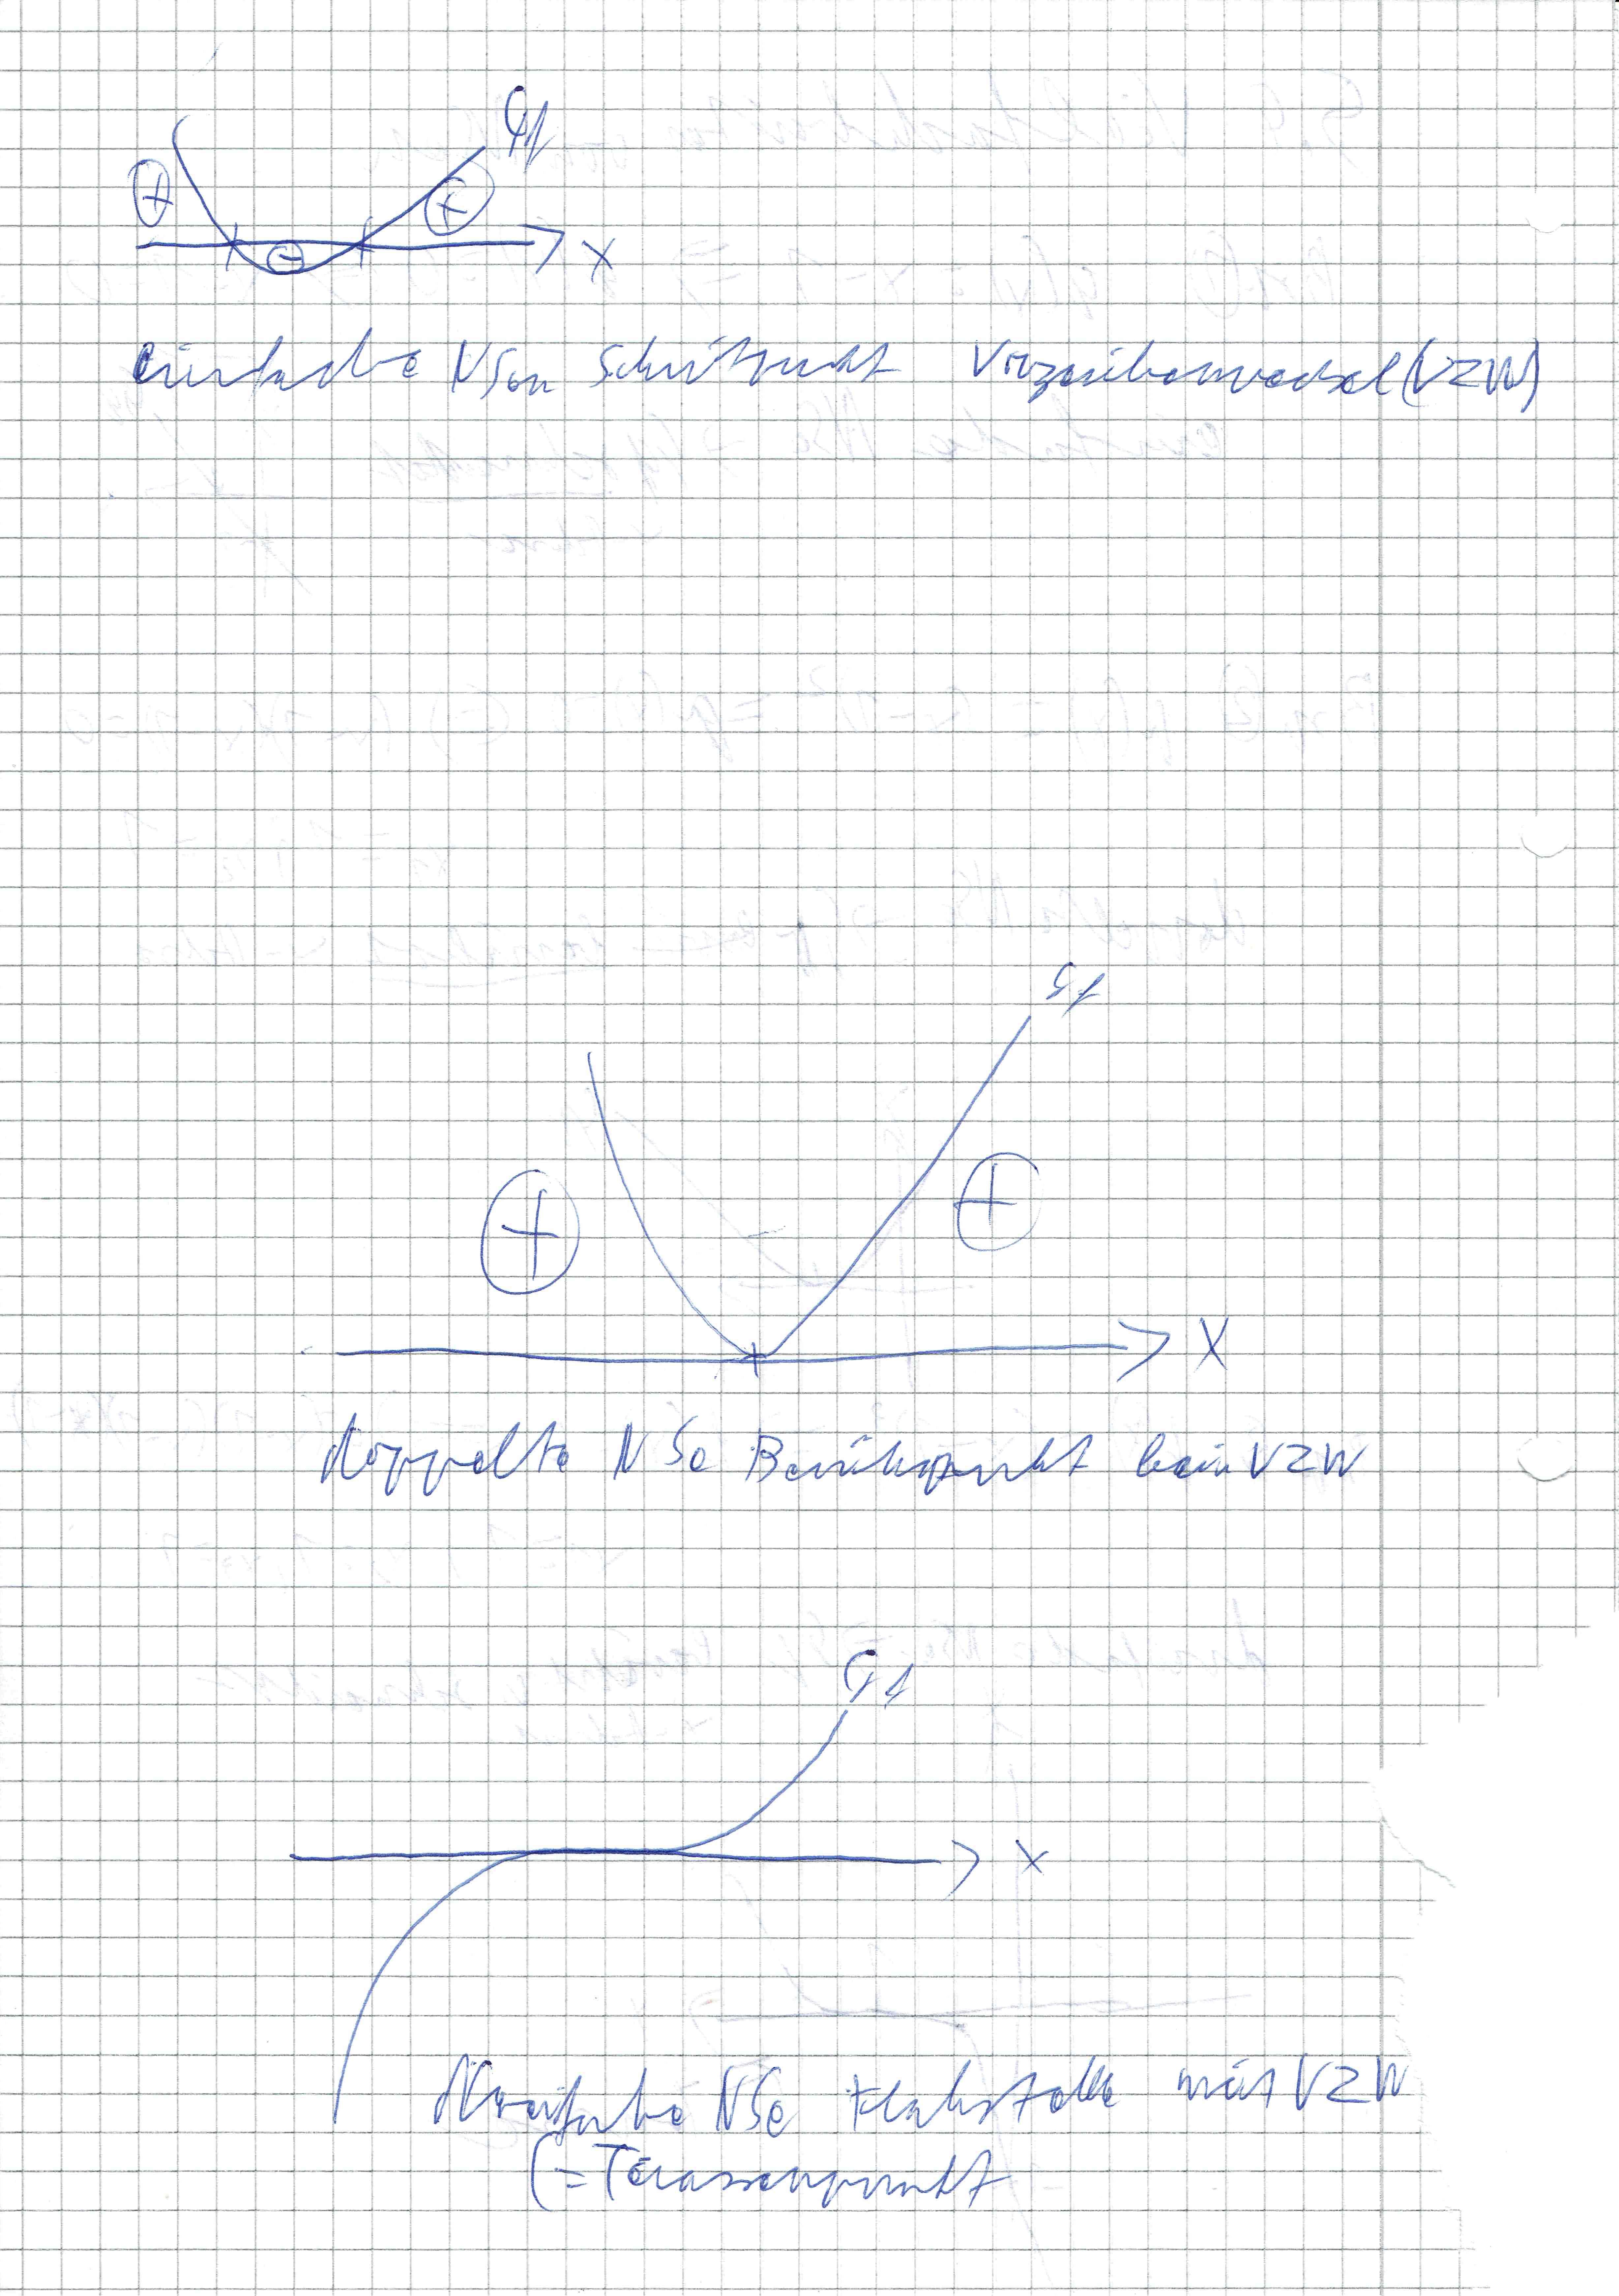 Gf
+
+
-
x
einfache NSen Schnittpunkt Vorzeichenwechsel (VZW)
Gf
+
+
x
doppelte NSe Berührpunkt kein VZW
Gf
x
dreifache NSe Flachstelle mit VZW
(=Terassenpunkt